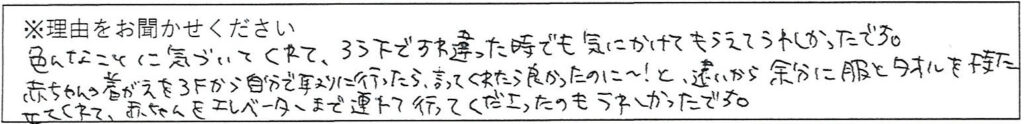 ※理由をお聞かせください
色んなことに気づいてくれて、ろう下ですれ違った時でも気にかけてもらえてうれしかったです。
赤ちゃんの着がえを3Fから自分で取りに行ったら、言ってくれたら良かったのに〜!と、遠いから余分に服とタオルを持た
せてくれて、赤ちゃんをエレベーターまで連れて行ってくださったのもうれしかったです。